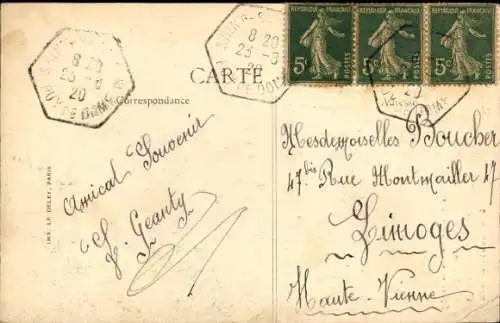 8 20
23-8
20
PUY DE DOME
8 20
23-8
20
RÉPUBLIQUE FRANÇAISE
5c
POSTES
RÉPUBLIQUE FRANÇAISE
5c
POSTES
RÉPUBLIQUE FRANÇAISE
5c
POSTES
CARTE
Correspondance
IMP. LE DELEY, PARIS
Amical Souvenir
Geanty
Mesdemoiselles Boucher
47 bis Rue Montmailler 47
Limoges
Haute-Vienne